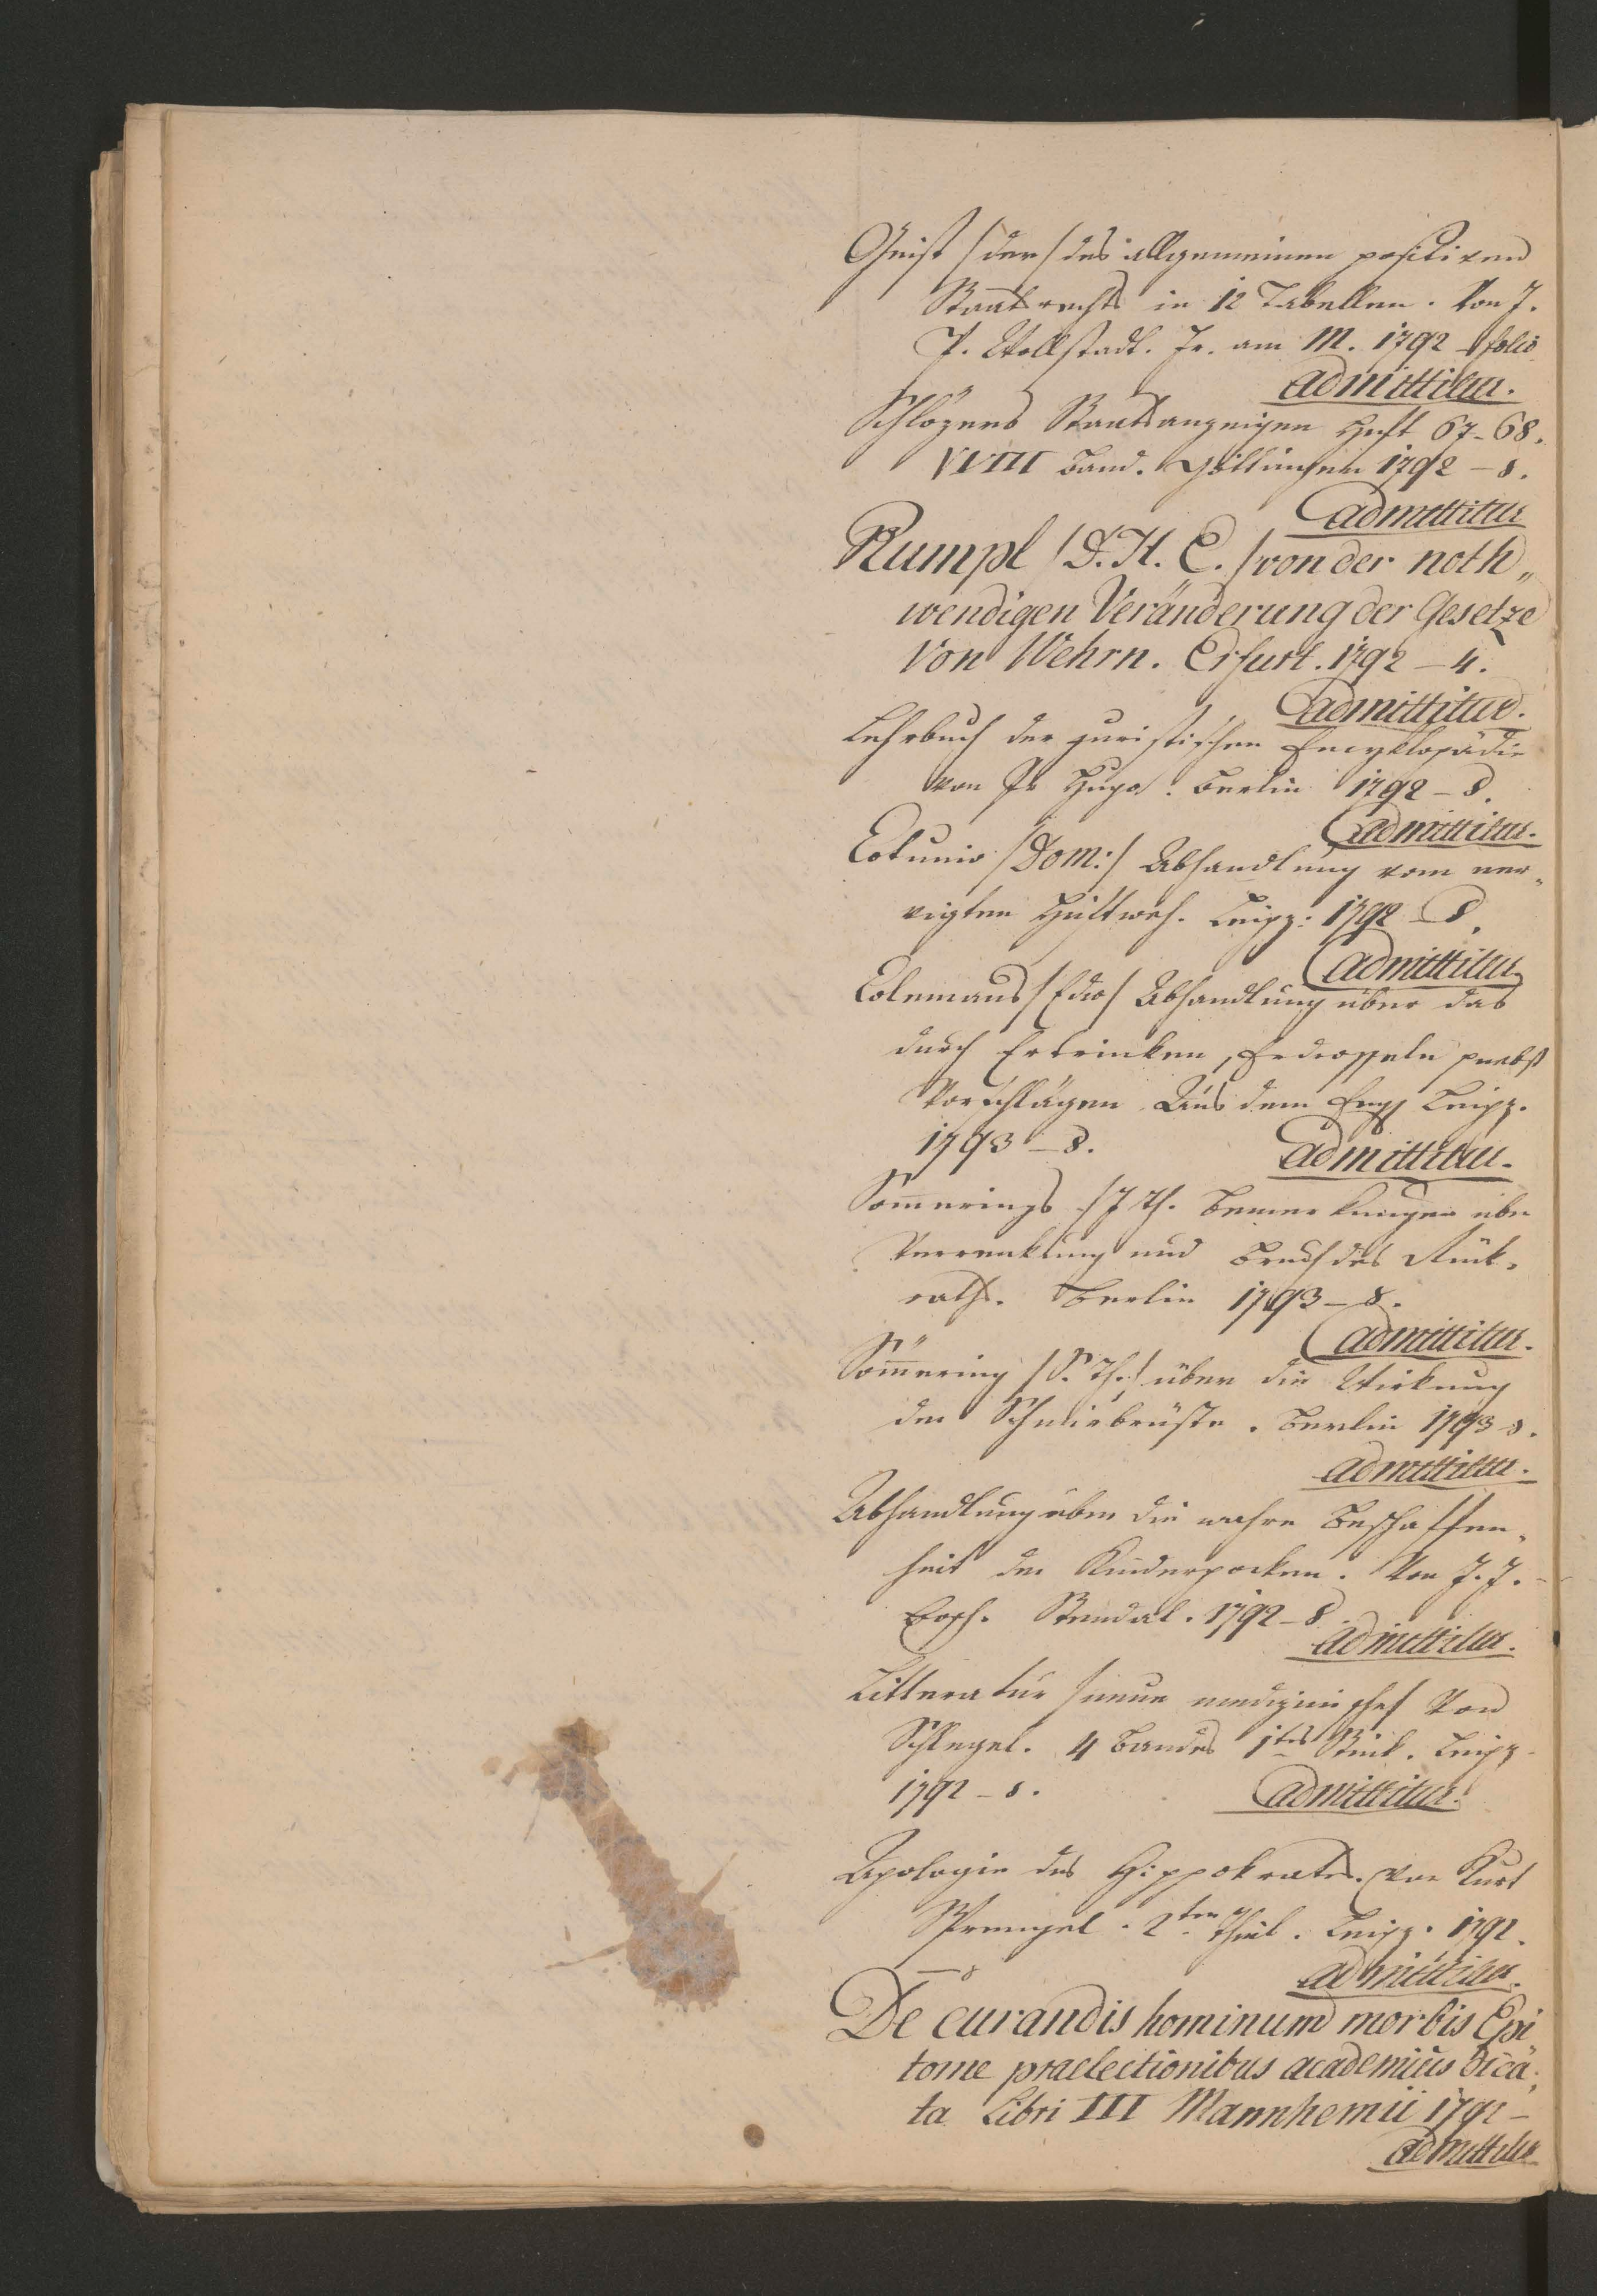 Geist /der/ des allgemeinen positiven
Staatsrechts in 12 Tabellen. Von J.
P. Wollstadt. Fr. am M. 1792 – folio
admittitur.
Schlözers Staatsanzeigen Heft 67–68.
XVIII Band. Göttingen 1792 – 8.
admittitur
Rumpl /D. H. E./ von der noth„
wendigen Veränderung der Gesetze
von Wehrn. Erfurt. 1792 – 4.
admittitur.
Lehrbuch der juristischen Encyklopädie
von Hr Hugo. Berlin 1792 – 8.
admittitur.
Cotunio /Dom:/ Abhandlung vom ner„
vigten Hüftweh. Leipz: 1792 – 8.
admittitur
Colemans /Edw/ Abhandlung über das
durch Ertrinken, Erdrosseln nebst
Vorschlägen Aus dem Engl Leipz.
1793 – 8.
admittitur.
Sömerings /J Th. Bemerkungen über
Verrenkung und Bruch des Rük„
raths. Berlin 1793 – 8.
admittitur.
Sömering /S. Th./ über die Wirkung
der Schnürbrüste. Berlin 1793 – 8.
admittitur.
Abhandlung über die wahre Beschaffen„
heit der Kinderpocken. Von J. J.
Stendal. 1792 – 8
admittitur.
Litteratur /neue medizinische/ Von
Schlegel. 4 Bandes 1tes Stük. Leipz.
1792 – 8.
admittitur.
Apologie des Hippokrates. von Kurt
Sprengel. 2ter Theil. Leipz. 1792.
– 8
admittitur.
De curandis hominum morbis Epi
tome praelectionibus academicis dica„
ta Libri III Mannhemii 1792 –
admittitur